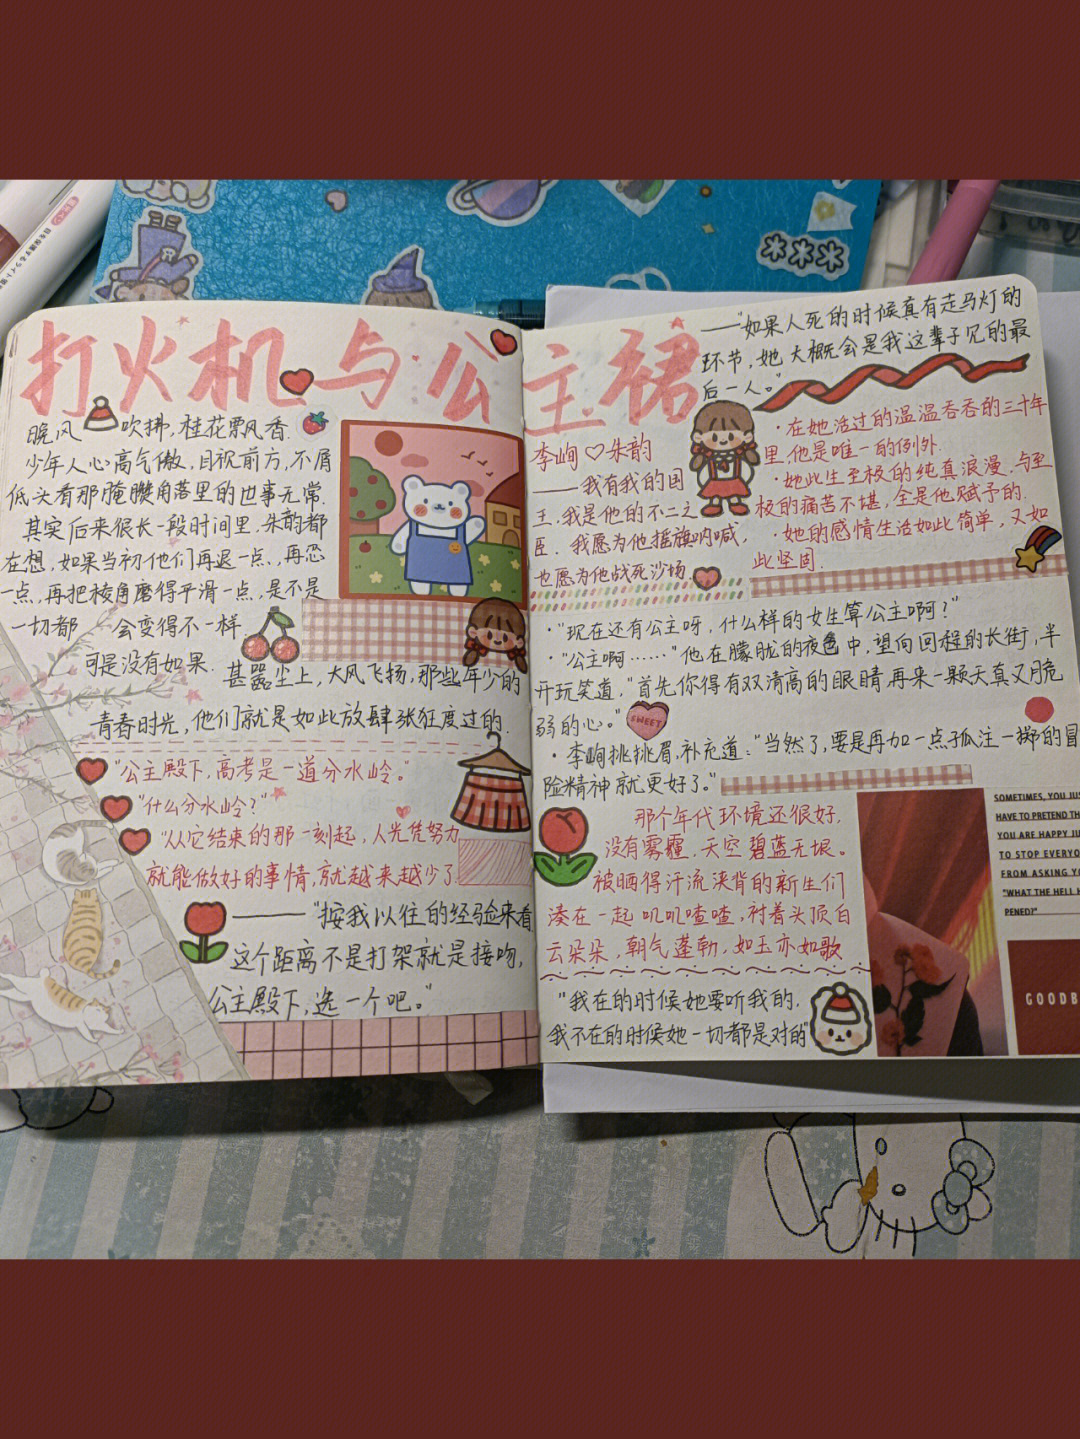 打火机与公主裙
晚风吹拂，桂花飘香.
少年人心高气傲，目视前方，不屑
低头看那腌臜角落里的世事无常.
其实后来很长一段时间里，朱韵都
在想，如果当初他们再退一点、再忍
一点，再把棱角磨得平滑一点，是不是
一切都会变得不一样.
可是没有如果.
甚嚣尘上，大风飞扬，那些年少的
青春时光，他们就是如此放肆张狂度过的.
"公主殿下，高考是一道分水岭。"
"什么分水岭？"
"从它结束的那一刻起，人光凭努力
就能做好的事情，就越来越少了.
——"按我以往的经验来看
这个距离不是打架就是接吻，
公主殿下，选一个吧。"
——"如果人死的时候真有走马灯的
环节，她大概会是我这辈子见的最
后一人。"
李峋♡朱韵
——我有我的国
王，我是他的不二之
臣．我愿为他摇旗呐喊，
也愿为他战死沙场.
·在她活过的温温吞吞的三十年
里，他是唯一的例外.
·她此生至极的纯真浪漫，与至
极的痛苦不堪，全是他赋予的.
·她的感情生活如此简单，又如
此坚固.
·"现在还有公主呀，什么样的女生算公主啊？"
·"公主啊……"他在朦胧的夜色中，望向回程的长街，半
开玩笑道，"首先你得有双清高的眼睛，再来一颗天真又脆
弱的心。"
SWEET
·李峋挑挑眉，补充道："当然了，要是再加一点孤注一掷的冒
险精神就更好了。"
那个年代环境还很好，
没有雾霾，天空碧蓝无垠。
被晒得汗流浃背的新生们
凑在一起叽叽喳喳，衬着头顶白
云朵朵，朝气蓬勃，如玉亦如歌
"我在的时候她要听我的，
我不在的时候她一切都是对的"
SOMETIMES, YOU JUS
HAVE TO PRETEND TH
YOU ARE HAPPY JU
TO STOP EVERYO
FROM ASKING YO
"WHAT THE HELL H
PENED?"
GOODB